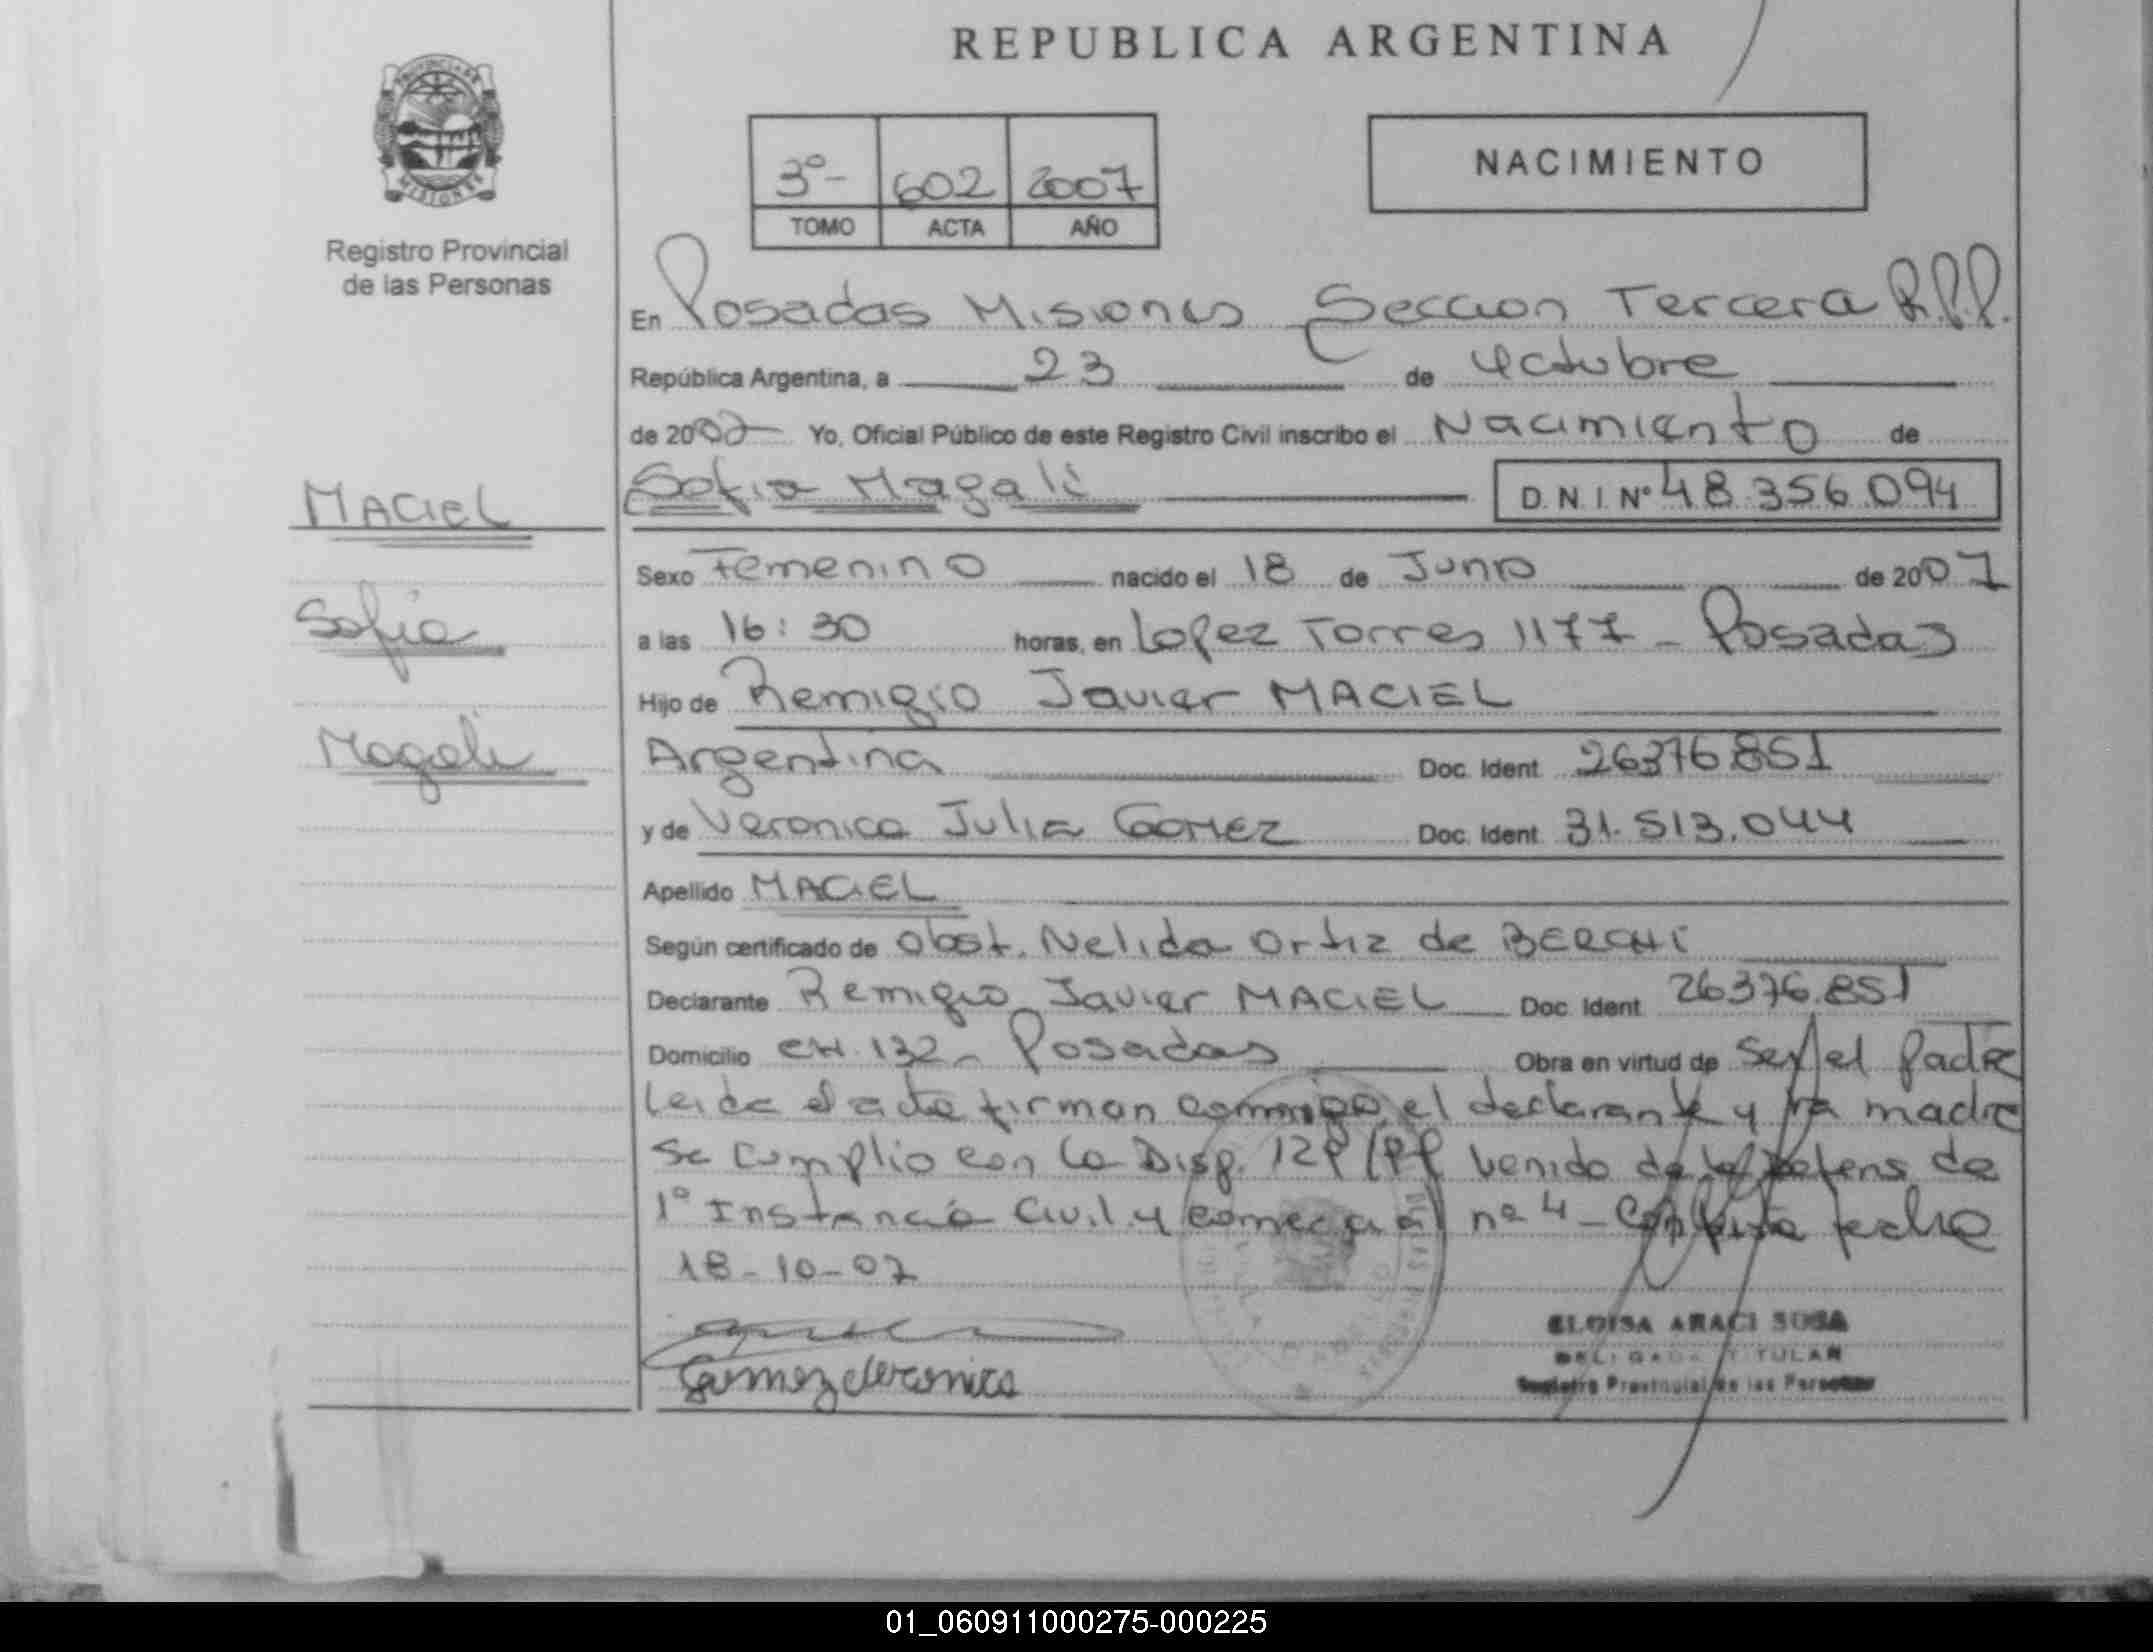 REPUBLICA ARGENTINA
PROVINCIA DE
MISIONES
Registro Provincial
de las Personas
3º- 602 2007
TOMO ACTA AÑO
NACIMIENTO
En Posadas Misiones Seccion Tercera R.P.P.
República Argentina, a 23 de Octubre
de 2007 Yo, Oficial Público de este Registro Civil inscribo el Nacimiento de
Sofia Magali D.N.I. Nº 48.356.094
MACIEL
Sofia
Magali
Sexo Femenino nacido el 18 de Junio de 2007
a las 16:30 horas, en Lopez Torres 1177 - Posadas
Hijo de Remigio Javier MACIEL
Argentina Doc. Ident. 26376.851
y de Veronica Julia GOMEZ Doc. Ident. 31.513.044
Apellido MACIEL
Según certificado de Obst. Nelida Ortiz de BERCHI
Declarante Remigio Javier MACIEL Doc. Ident. 26376.851
Domicilio CH. 132 - Posadas Obra en virtud de Ser el padre
Leida el acta firman conmigo el declarante y la madre
Se cumplio con la Disp. venido de de
1º Instancia Civil y comercial nº 4 - fecha
18-10-07
Gomez Veronica
ELOISA ARACI SOSA
DELEGADA TITULAR
Registro Provincial de las Personas
01_060911000275-000225